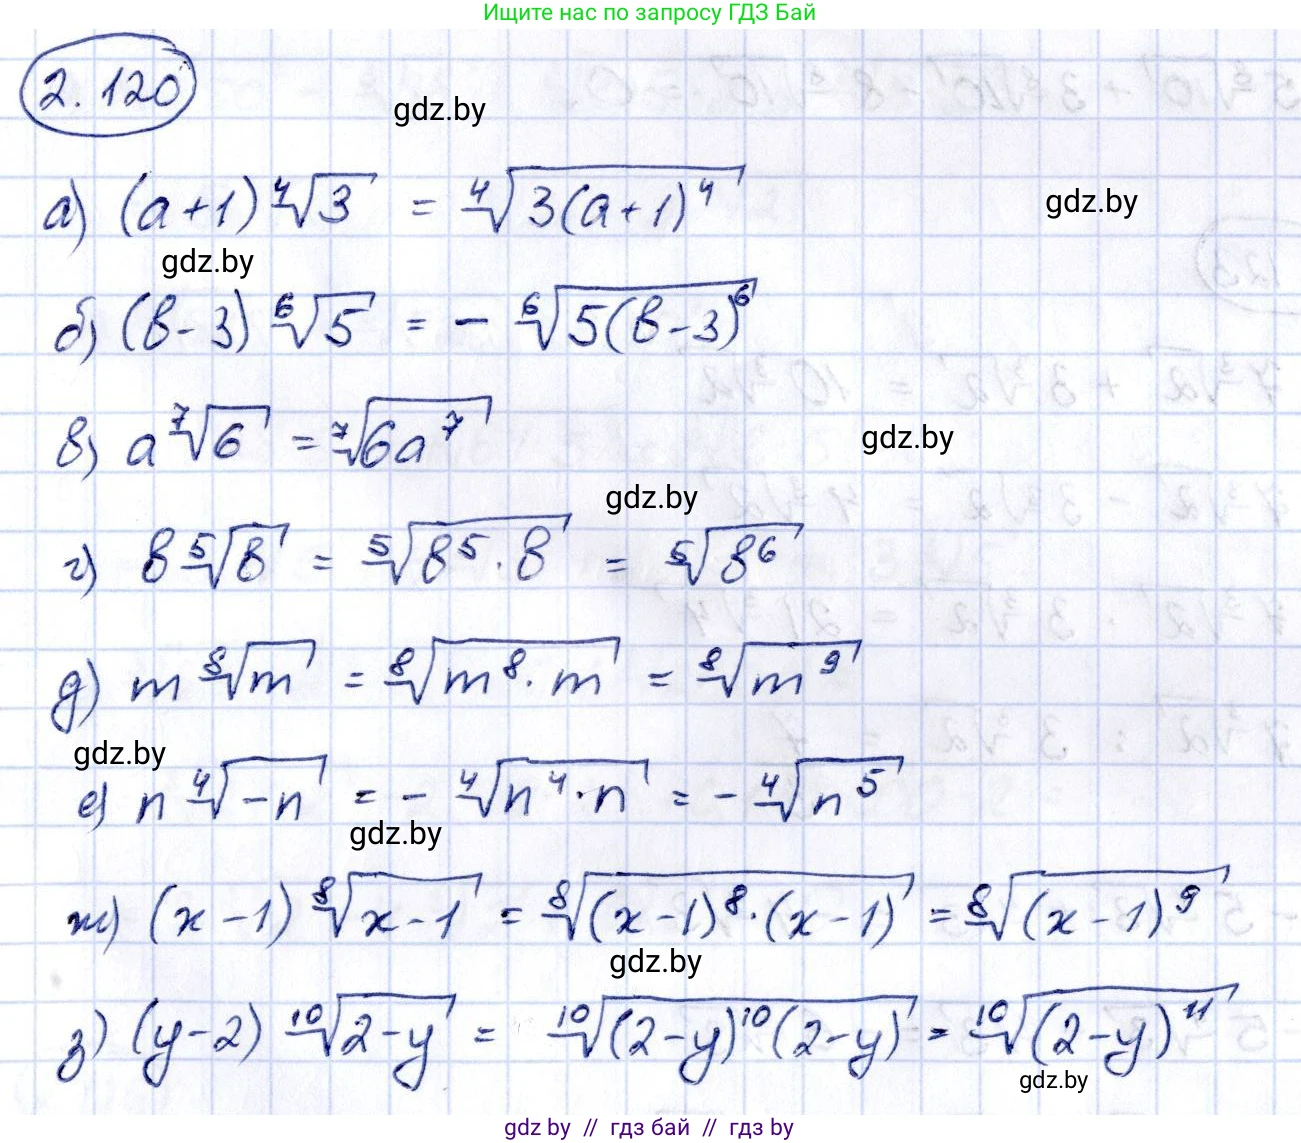 Ищите нас по запросу ГДЗ Бай
2.120
gdz.by
а) (a+1) ⁴√3 = ⁴√3(a+1)⁴
gdz.by
gdz.by
б) (в-3) ⁶√5 = - ⁶√5(в-3)⁶
в) a ⁷√6 = ⁷√6a⁷
gdz.by
gdz.by
г) в ⁵√в = ⁵√в⁵·в = ⁵√в⁶
д) m ⁸√m = ⁸√m⁸·m = ⁸√m⁹
gdz.by
е) n ⁴√-n = - ⁴√n⁴·n = - ⁴√n⁵
gdz.by
ж) (x-1) ⁸√x-1 = ⁸√(x-1)⁸·(x-1) = ⁸√(x-1)⁹
gdz.by
з) (y-2) ¹⁰√2-y = ¹⁰√(2-y)¹⁰(2-y) = ¹⁰√(2-y)¹¹
gdz.by
gdz by // гдз бай // гдз by